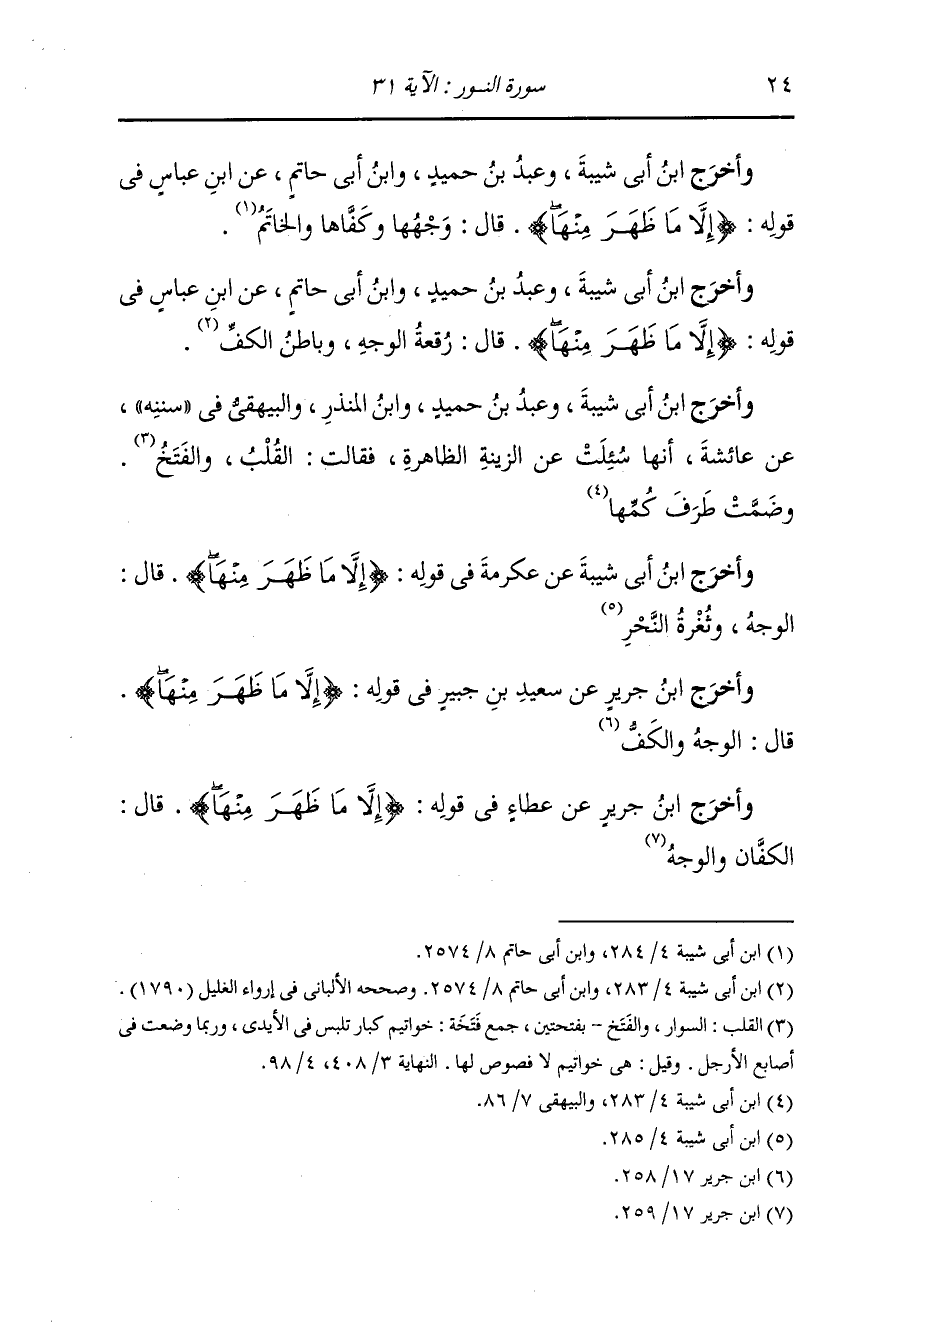 ٢٤ سورة النـور : الآية ٣١
وأخرَج ابنُ أبى شيبةَ ، وعبدُ بنُ حميدٍ ، وابنُ أبى حاتمٍ ، عن ابنِ عباسٍ فى
قولِه : ﴿إِلَّا مَا ظَهَـرَ مِنْهَاۖ﴾ . قال : وَجْهُها وكَفَّاها والخاتَمُ(١) .
وأخرَج ابنُ أبى شيبةَ ، وعبدُ بنُ حميدٍ ، وابنُ أبى حاتمٍ ، عن ابنِ عباسٍ فى
قولِه : ﴿إِلَّا مَا ظَهَـرَ مِنْهَاۖ﴾ . قال : رُقعةُ الوجهِ ، وباطنُ الكفِّ(٢) .
وأخرَج ابنُ أبى شيبةَ ، وعبدُ بنُ حميدٍ ، وابنُ المنذرِ ، والبيهقىُّ فى «سننِه» ،
عن عائشةَ ، أنها سُئِلَتْ عن الزينةِ الظاهرةِ ، فقالت : القُلْبُ ، والفَتَخُ(٣) .
وضَمَّتْ طَرَفَ كُمِّها(٤)
وأخرَج ابنُ أبى شيبةَ عن عكرمةَ فى قولِه : ﴿إِلَّا مَا ظَهَـرَ مِنْهَاۖ﴾ . قال :
الوجهُ ، وثُغْرةُ النَّحْرِ(٥)
وأخرَج ابنُ جريرٍ عن سعيدِ بنِ جبيرٍ فى قولِه : ﴿إِلَّا مَا ظَهَـرَ مِنْهَاۖ﴾ .
قال : الوجهُ والكَفُّ(٦)
وأخرَج ابنُ جريرٍ عن عطاءٍ فى قولِه : ﴿إِلَّا مَا ظَهَـرَ مِنْهَاۖ﴾ . قال :
الكفَّان والوجهُ(٧)
(١) ابن أبى شيبة ٤/ ٢٨٤، وابن أبى حاتم ٨/ ٢٥٧٤.
(٢) ابن أبى شيبة ٤/ ٢٨٣، وابن أبى حاتم ٨/ ٢٥٧٤. وصححه الألبانى فى إرواء الغليل (١٧٩٠) .
(٣) القلب : السوار ، والفَتَخ - بفتحتين ، جمع فَتَخَة : خواتيم كبار تلبس فى الأيدى ، وربما وضعت فى
أصابع الأرجل . وقيل : هى خواتيم لا فصوص لها . النهاية ٣/ ٤٠٨، ٤/ ٩٨.
(٤) ابن أبى شيبة ٤/ ٢٨٣، والبيهقى ٧/ ٨٦.
(٥) ابن أبى شيبة ٤/ ٢٨٥.
(٦) ابن جرير ١٧/ ٢٥٨.
(٧) ابن جرير ١٧/ ٢٥٩.